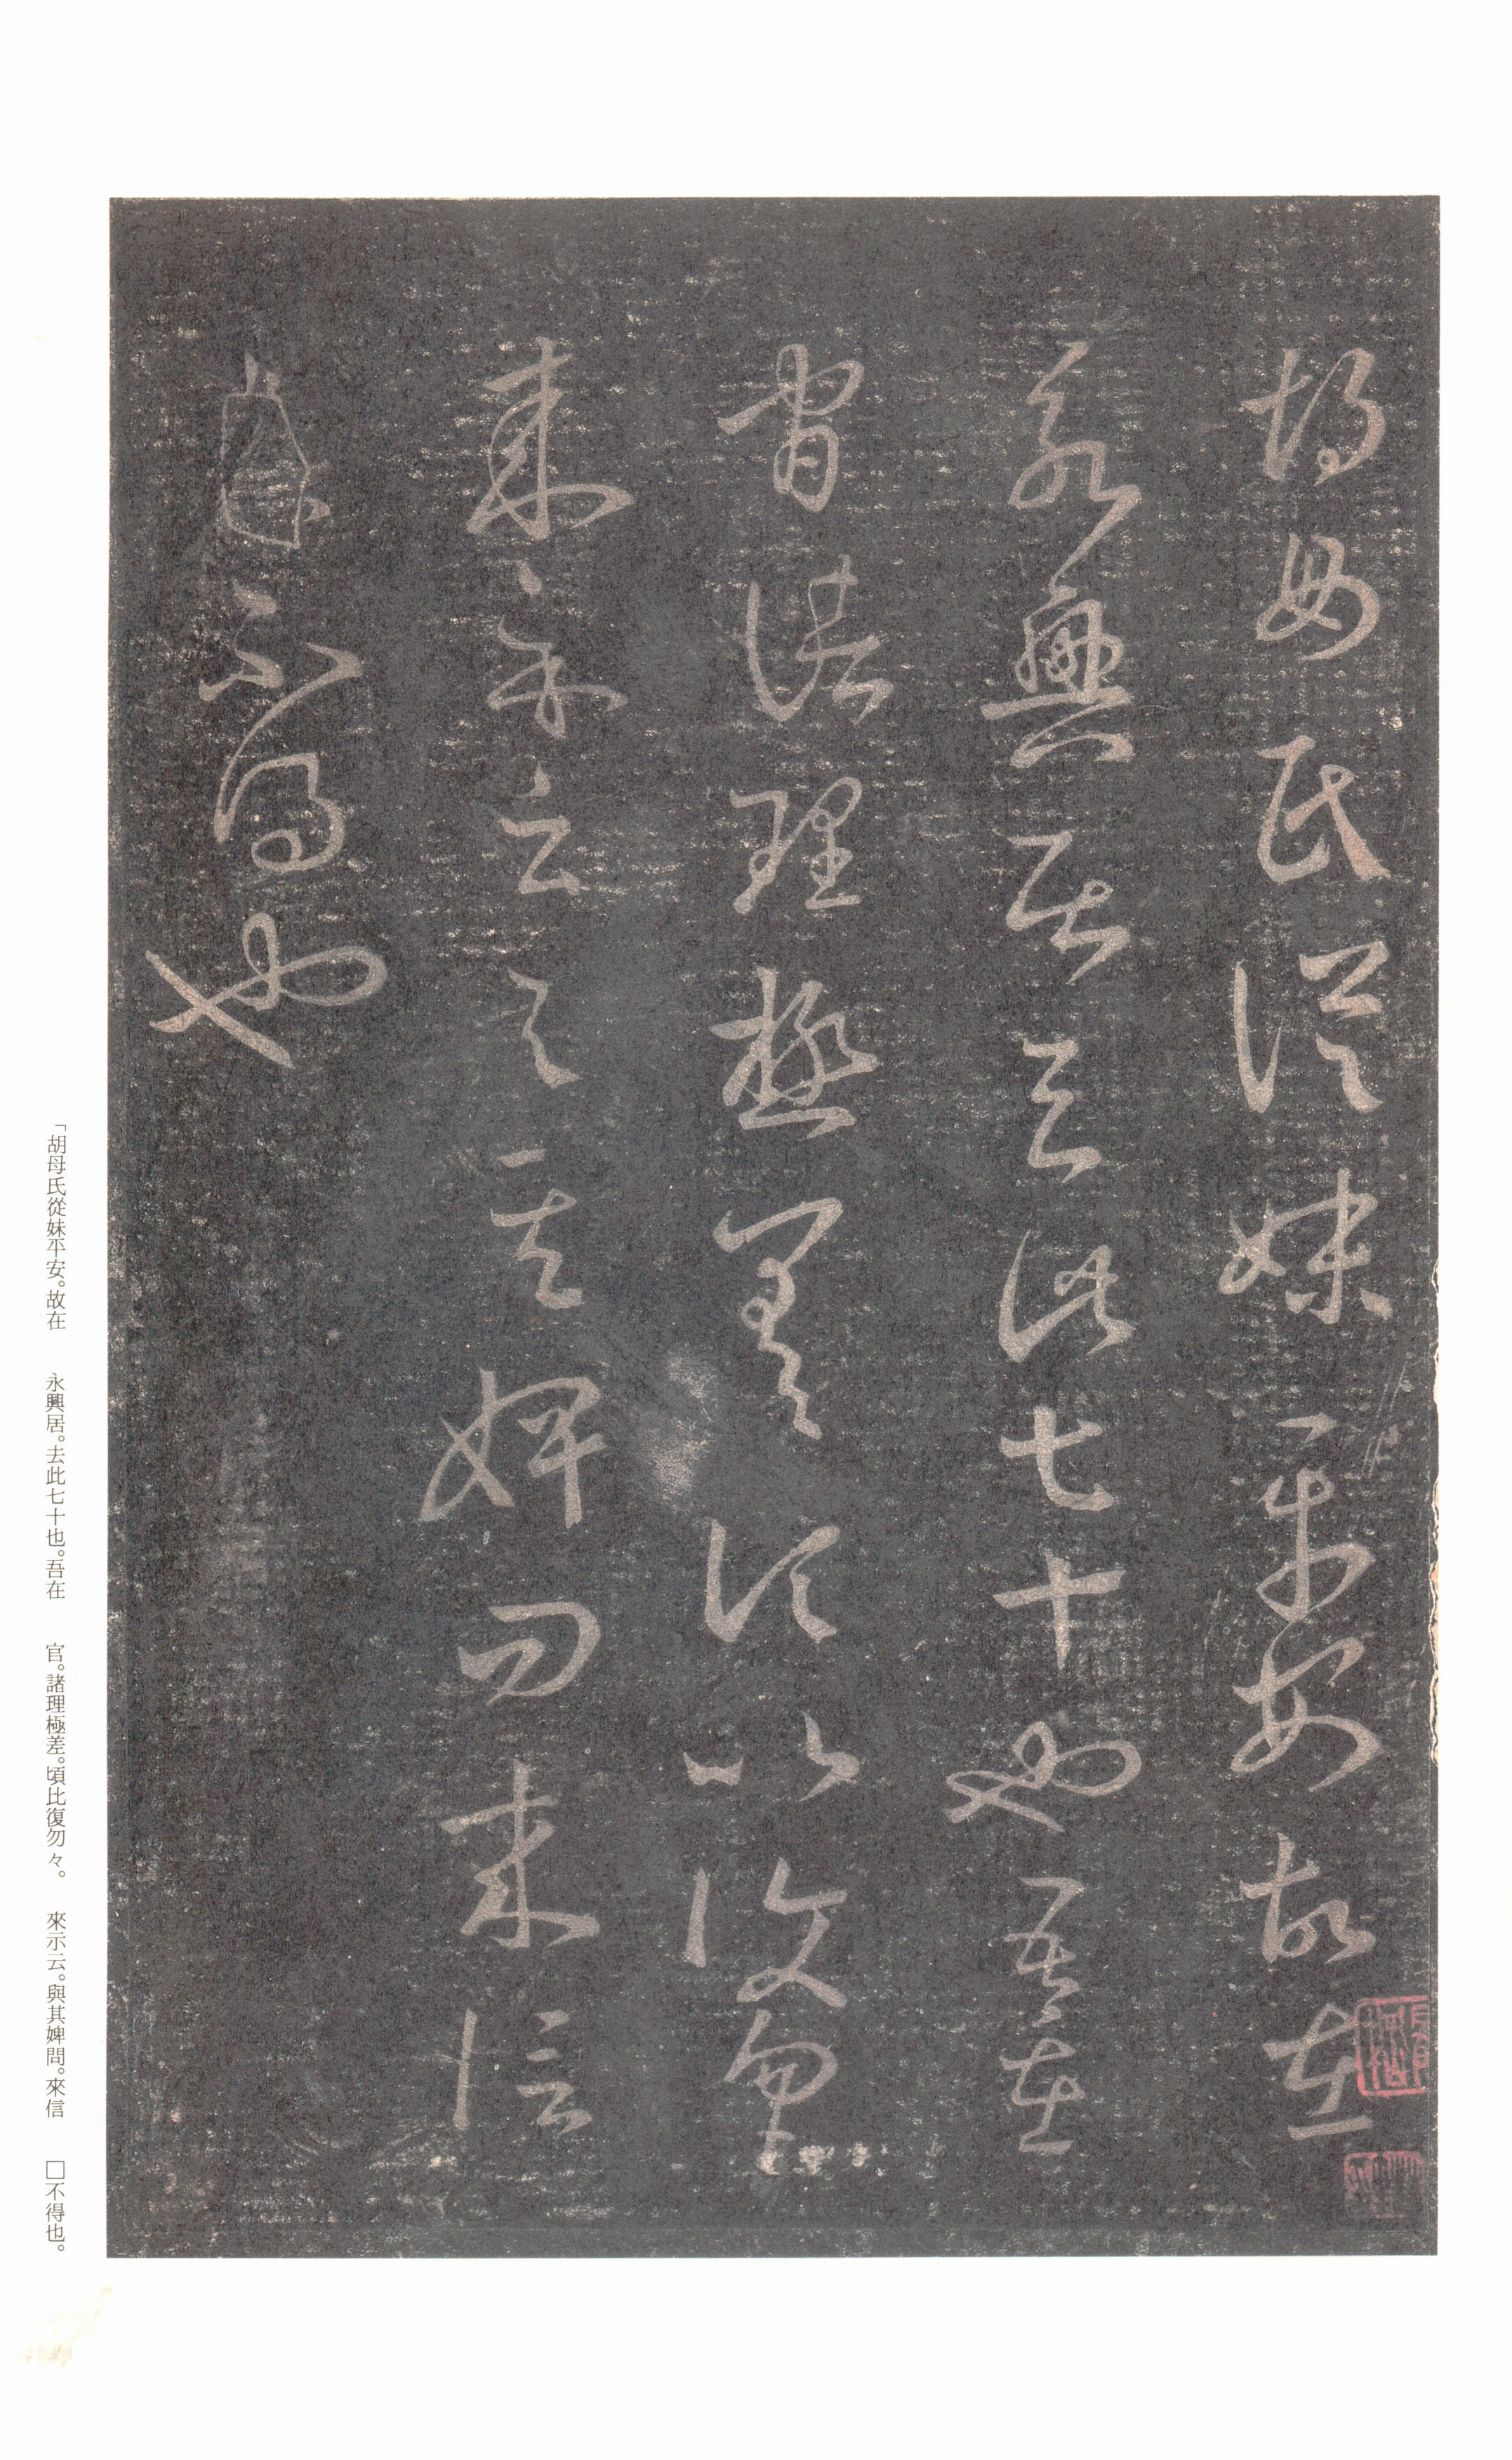 胡母氏從妹平安故在
永興居去此七十也吾在
官諸理極差頃比復勿
來示云與其婢問來信
不得也
「胡母氏從妹平安。故在　永興居。去此七十也。吾在　官。諸理極差。頃比復勿々。　來示云。與其婢問。來信　□不得也。